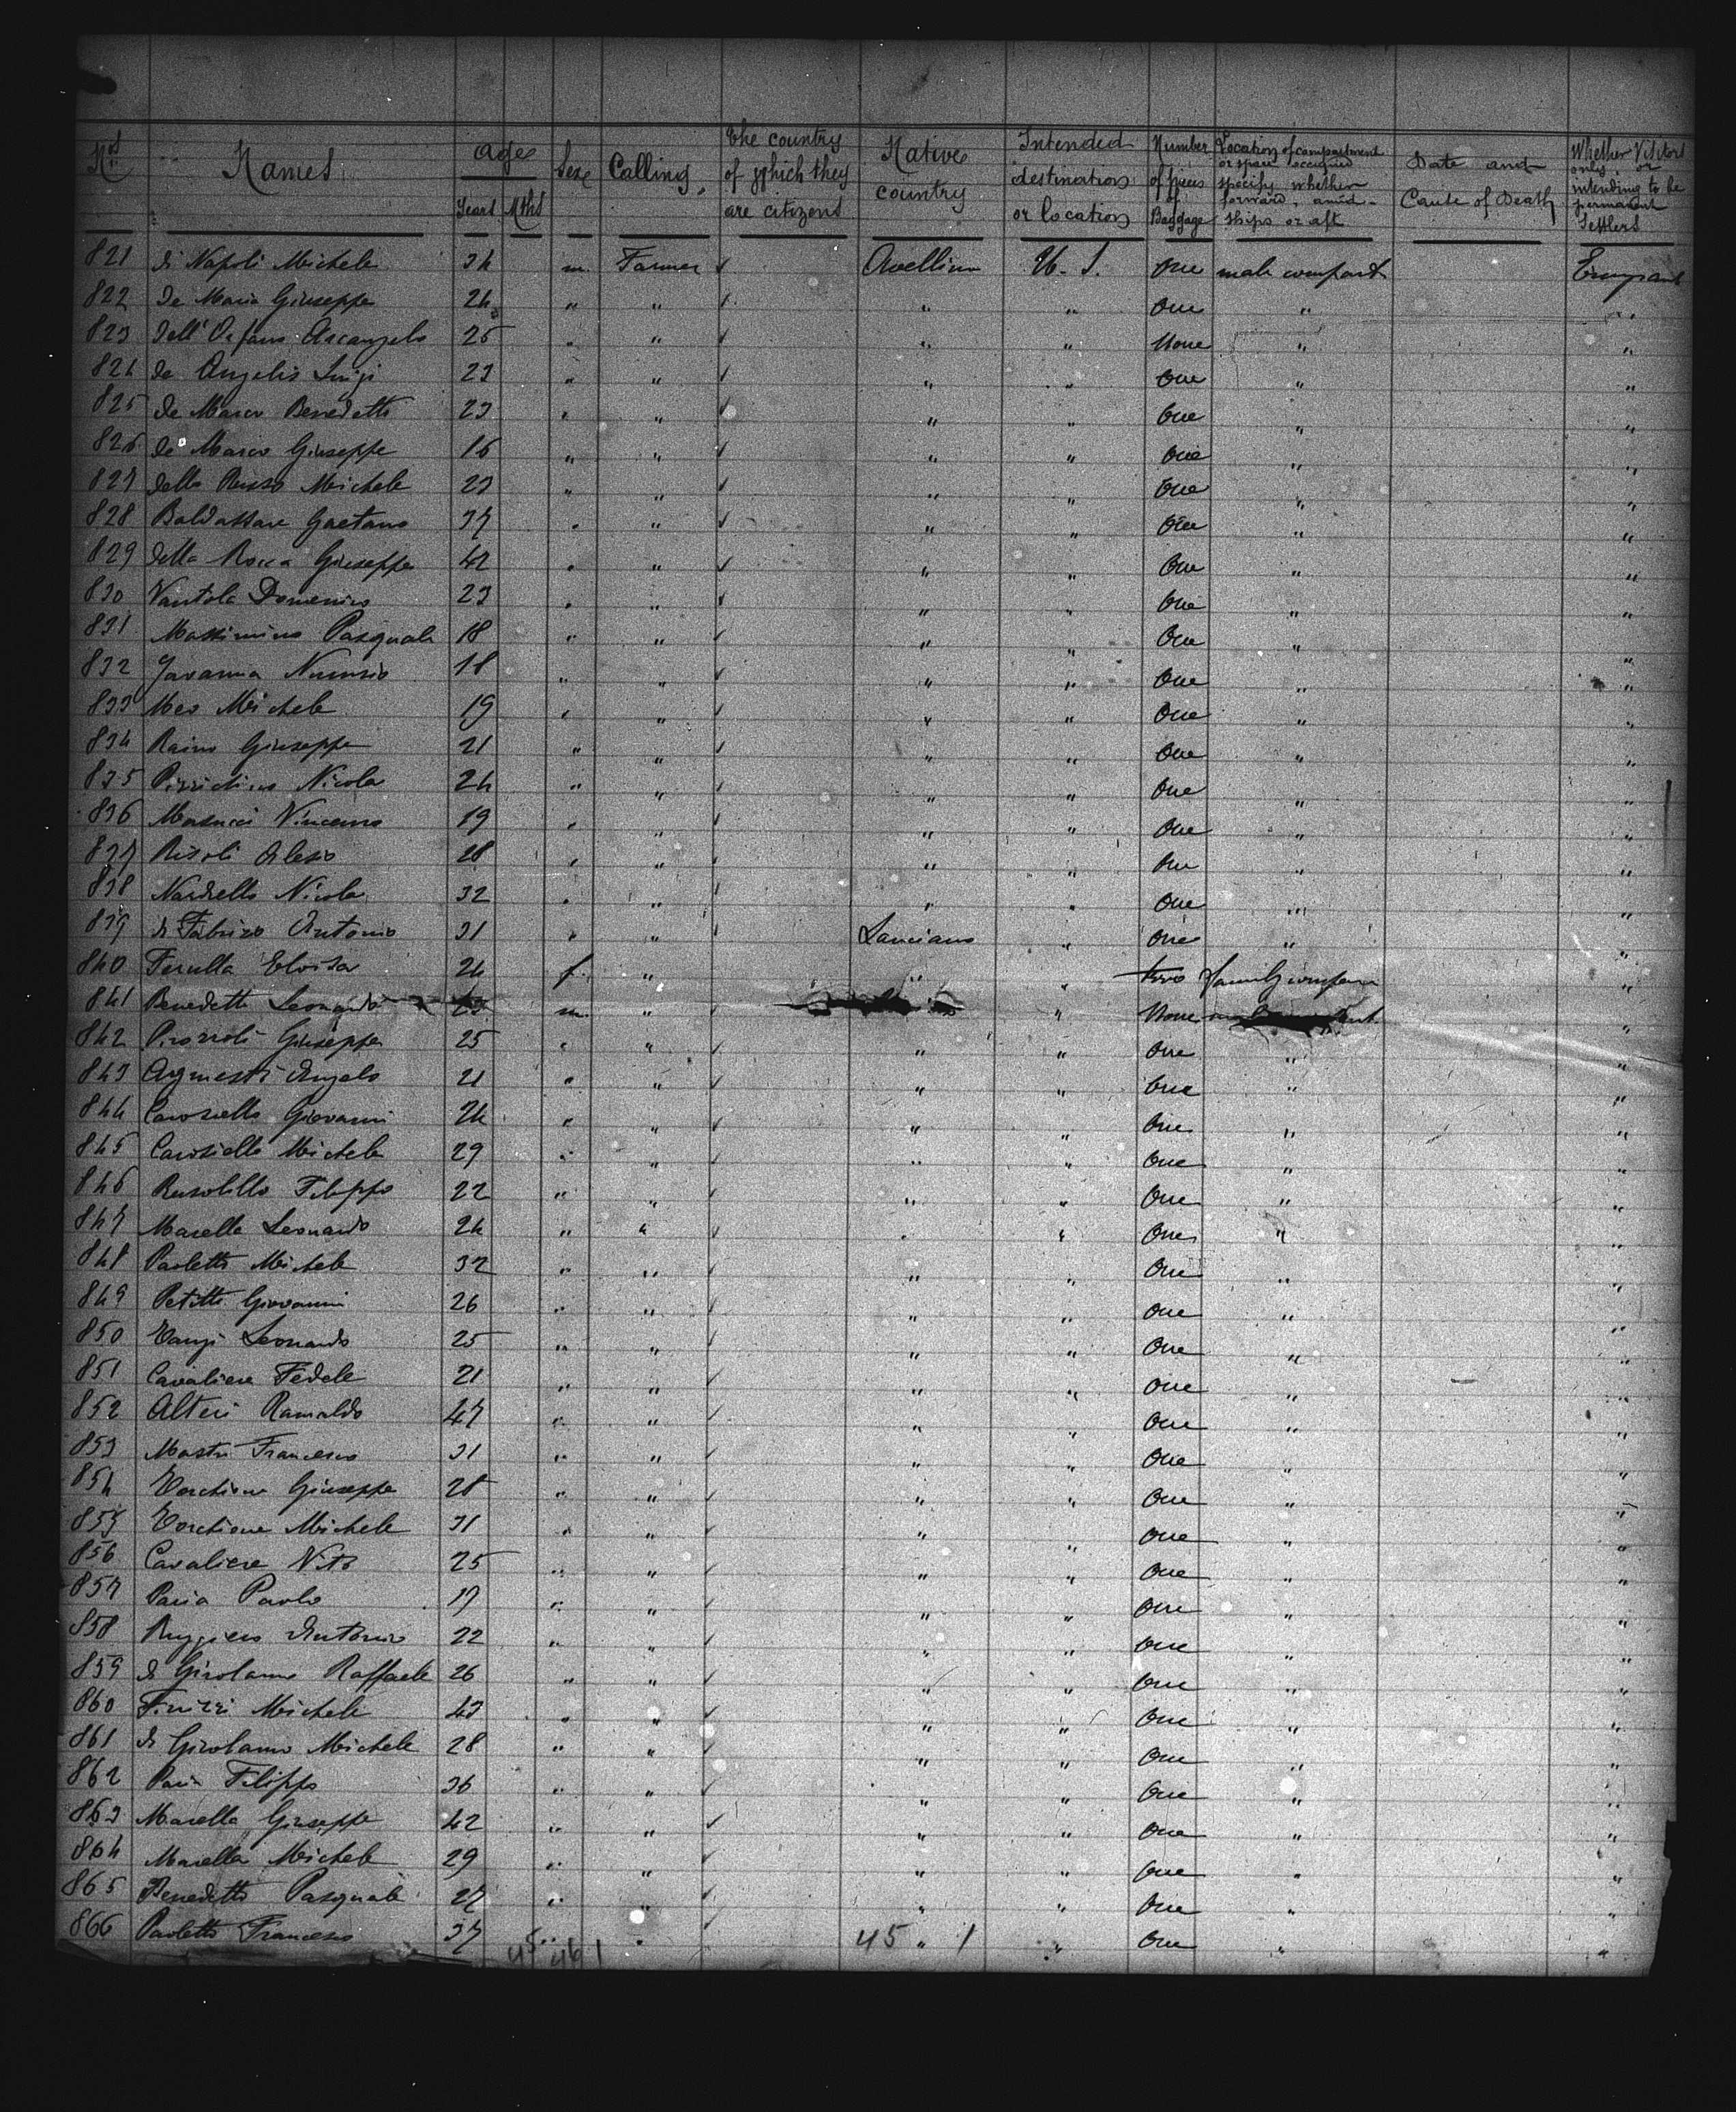 Nos Names Age Years Mths Sex Calling The country of which they are citizens Native country Intended destination or location Number of pieces of Baggage Location of compartment or space occupied specify whether forward, amid-ships or aft Date and Cause of Death Whether Visitors only, or intending to be permanent Settlers
821 di Napoli Michele 34 m. Farmer ✓ Avellino U. S. One male compart Emigrant
822 de Maria Giuseppe 24 " " ✓ " " One " "
823 dell' Orfano Arcangelo 25 " " ✓ " " None " "
824 de Angelis Luigi 23 " " ✓ " " One " "
825 de Marco Benedetto 23 " " ✓ " " One " "
826 de Marco Giuseppe 16 " " ✓ " " One " "
827 della Russo Michele 23 " " ✓ " " One " "
828 Baldassare Gaetano 37 " " ✓ " " One " "
829 della Rocca Giuseppe 42 " " ✓ " " One " "
830 Domenico 23 " " ✓ " " One " "
831 Massimino Pasquale 18 " " ✓ " " One " "
832 Javanna Nunzio 18 " " ✓ " " One " "
833 Meo Michele 19 " " ✓ " " One " "
834 Raino Giuseppe 21 " " ✓ " " One " "
835 Nicola 24 " " ✓ " " One " "
836 Masucci Vincenzo 19 " " ✓ " " One " "
837 Risoli Alesio 28 " " ✓ " " One " "
838 Nardiello Nicola 32 " " ✓ " " One " "
839 di Fabrizo Antonio 31 " " ✓ Lanciano " One " "
840 Ferulla Eloisa 24 f. " " " two family compart "
841 Benedetti Leonardo m. " ✓ " None "
842 Pirozzoli Giuseppe 25 " " ✓ " " One " "
843 Agnesti Angelo 21 " " ✓ " " One " "
844 Carosiello Giovanni 24 " " ✓ " " One " "
845 Carosiello Michele 29 " " ✓ " " One " "
846 Rusolillo Filippo 22 " " ✓ " " One " "
847 Marella Leonardo 24 " " ✓ " " One " "
848 Paoletti Michele 32 " " ✓ " " One " "
849 Petitti Giovanni 26 " " ✓ " " One " "
850 Tangi Leonardo 25 " " ✓ " " One " "
851 Cavaliere Fedele 21 " " ✓ " " One " "
852 Alteri Ramaldo 47 " " ✓ " " One " "
853 Mastri Francesco 31 " " ✓ " " One " "
854 Torchione Giuseppe 28 " " ✓ " " One " "
855 Torchione Michele 31 " " ✓ " " One " "
856 Cavaliere Vito 25 " " ✓ " " One " "
857 Paria Paolo 17 " " ✓ " " One " "
858 Ruggiero Antonio 22 " " ✓ " " One " "
859 di Girolamo Raffaele 26 " " ✓ " " One " "
860 Finizzi Michele 43 " " ✓ " " One " "
861 di Girolamo Michele 28 " " ✓ " " One " "
862 Paria Filippo 36 " " ✓ " " One " "
863 Marella Giuseppe 42 " " ✓ " " One " "
864 Marella Michele 29 " " ✓ " " One " "
865 Benedetti Pasquale 27 " " ✓ " " One " "
866 Paoletti Francesco 37 " " ✓ " " One " "
45 46 1 45 1